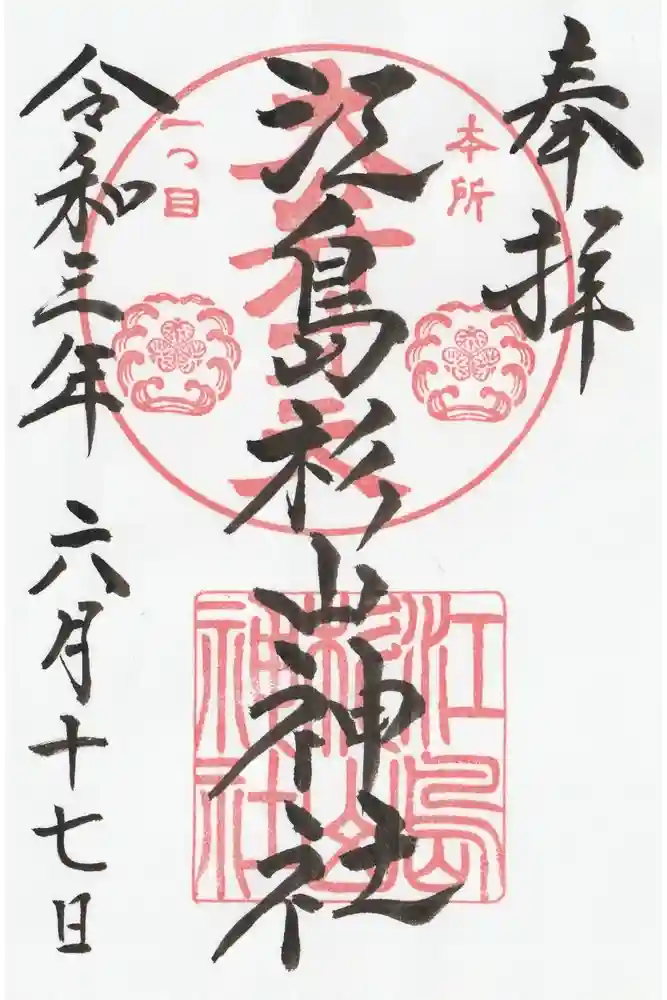 奉拝
本所
江島杉山神社
一つ目
令和三年 六月十七日
江島
杉山
神社